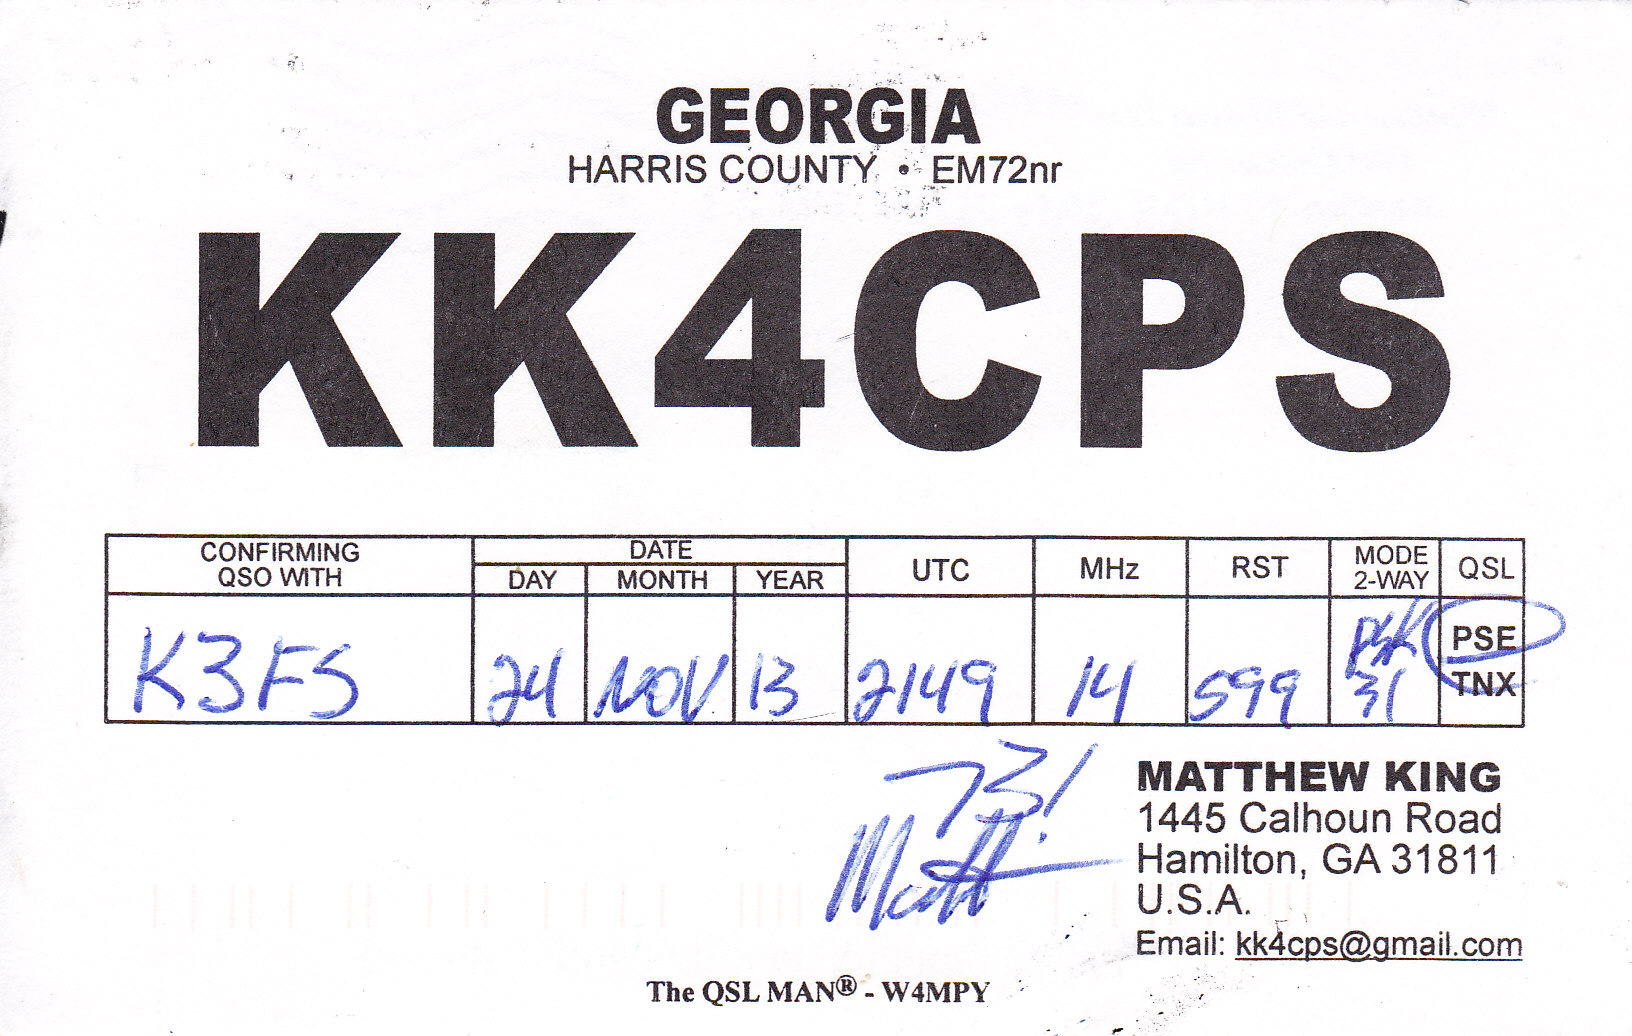 GEORGIA
HARRIS COUNTY • EM72nr
KK4CPS
CONFIRMING QSO WITH
DATE
DAY MONTH YEAR
UTC
MHz
RST
MODE 2-WAY
QSL
K3FS 24 NOV 13 2149 14 599 PSK 31
PSE
TNX
73!
Matt
MATTHEW KING
1445 Calhoun Road
Hamilton, GA 31811
U.S.A.
Email: kk4cps@gmail.com
The QSL MAN® - W4MPY